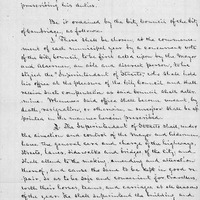 prescribing his duties.
Be it ordained by the City Council of the City
of Cambridge, as follows:
1. There shall be chosen at the commence-
ment of each municipal year by a concurrent vote
of the City Council, to be first acted upon by the Mayor
and Aldermen, an able and discreet person, to be
styled the "Superintendent of Streets", who shall hold
his office at the pleasure of the City Council and shall
receive such compensation as said Council shall deter-
mine. Whenever said office shall become vacant by
death, resignation, or otherwise a successor shall be ap-
pointed in the manner herein prescribed.
2. The Superintendent of Streets shall, under
the direction and control of the Mayor and Aldermen
have the general care and charge of the highways,
streets, lanes, sidewalks and bridges of the city; and
shall attend to the making, amending and alteration
thereof, and cause the same to be kept in good re-
pair so as to be safe and convenient for travellers
with their horses, teams, and carriages at all seasons of
the year. He shall superintend the building and